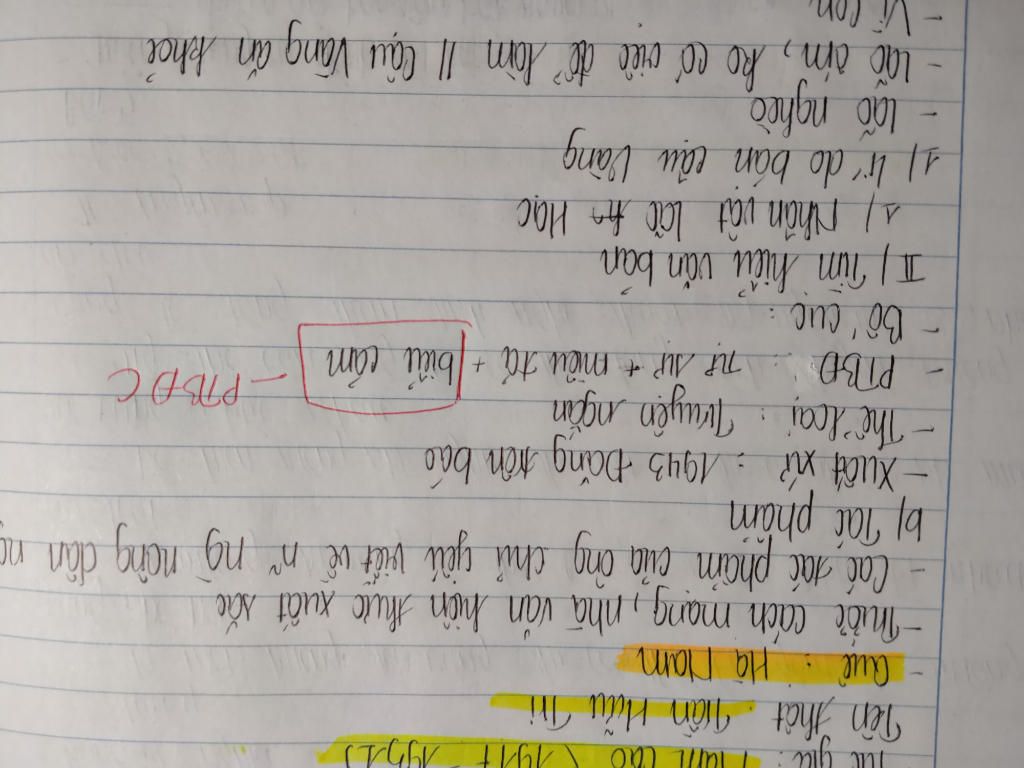 Tác giả: Nam Cao (1917 - 1951)
Tên thật: Trần Hữu Tri
- Quê: Hà Nam
- Trước cách mạng, nhà văn hiện thực xuất sắc
- Các tác phẩm của ông chủ yếu viết về nº ng nông dân
b/ Tác phẩm
- Xuất xứ: 1943 Đăng trên báo
- Thể loại: Truyện ngắn
- PTBĐ: Tự sự + miêu tả + biểu cảm - PTBĐ C
- Bố cục:
II/ Tìm hiểu văn bản
1/ Nhân vật Lão Hạc
1/ Lí do bán cậu Vàng
- Lão nghèo
- Lão ốm, ko có việc để làm // cậu Vàng ăn khỏe
- Vì con